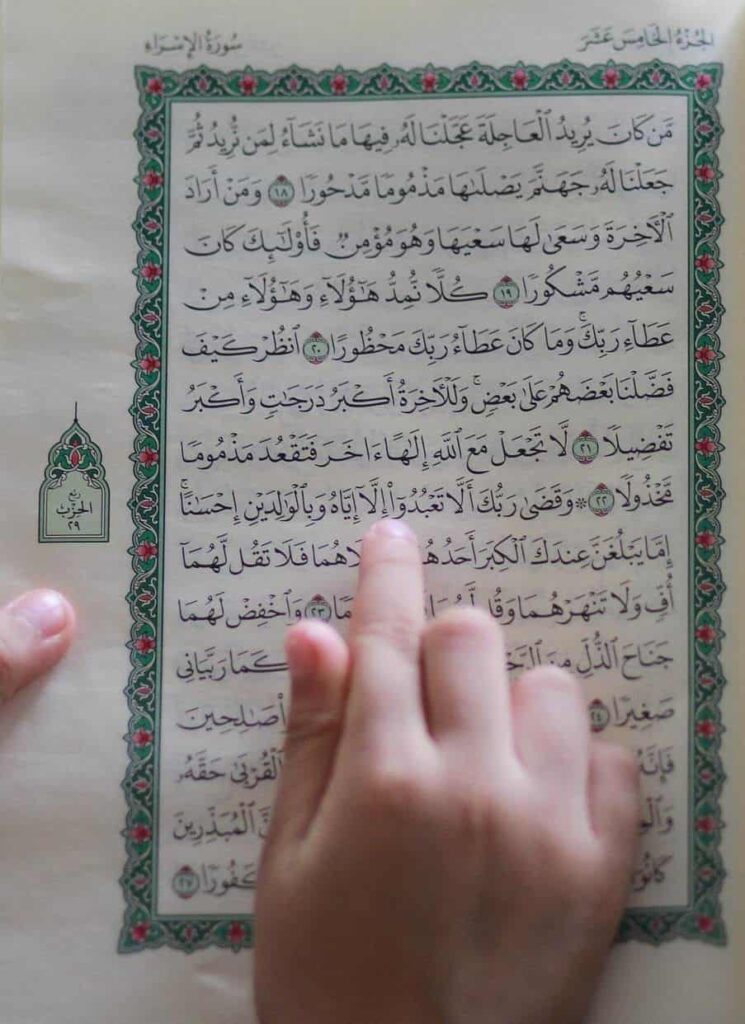 الجُزْءُ الخَامِسَ عَشَرَ
سُورَةُ الإِسْرَاءِ
مَّن كَانَ يُرِيدُ ٱلْعَاجِلَةَ عَجَّلْنَا لَهُۥ فِيهَا مَا نَشَآءُ لِمَن نُّرِيدُ ثُمَّ
جَعَلْنَا لَهُۥ جَهَنَّمَ يَصْلَىٰهَا مَذْمُومًا مَّدْحُورًا ١٨ وَمَنْ أَرَادَ
ٱلْأٓخِرَةَ وَسَعَىٰ لَهَا سَعْيَهَا وَهُوَ مُؤْمِنٌ فَأُو۟لَٰٓئِكَ كَانَ
سَعْيُهُم مَّشْكُورًا ١٩ كُلًّا نُّمِدُّ هَٰٓؤُلَآءِ وَهَٰٓؤُلَآءِ مِنْ
عَطَآءِ رَبِّكَ ۚ وَمَا كَانَ عَطَآءُ رَبِّكَ مَحْظُورًا ٢٠ ٱنظُرْ كَيْفَ
فَضَّلْنَا بَعْضَهُمْ عَلَىٰ بَعْضٍ ۚ وَلَلْأٓخِرَةُ أَكْبَرُ دَرَجَٰتٍ وَأَكْبَرُ
تَفْضِيلًا ٢١ لَّا تَجْعَلْ مَعَ ٱللَّهِ إِلَٰهًا ءَاخَرَ فَتَقْعُدَ مَذْمُومًا
مَّخْذُولًا ٢٢ ۞ وَقَضَىٰ رَبُّكَ أَلَّا تَعْبُدُوٓا۟ إِلَّآ إِيَّاهُ وَبِٱلْوَٰلِدَيْنِ إِحْسَٰنًا ۚ
إِمَّا يَبْلُغَنَّ عِندَكَ ٱلْكِبَرَ أَحَدُهُمَا فَلَا تَقُل لَّهُمَآ
أُفٍّ وَلَا تَنْهَرْهُمَا وَقُل لَّهُمَا ٢٣ وَٱخْفِضْ لَهُمَا
جَنَاحَ ٱلذُّلِّ مِنَ كَمَا رَبَّيَانِى
صَغِيرًا ٢٤ صَٰلِحِينَ
فَإِنَّهُۥ ٱلْقُرْبَىٰ حَقَّهُۥ
ٱلْمُبَذِّرِينَ
كَفُورًا ٢٧
ربع
الحِزْبُ
٢٩